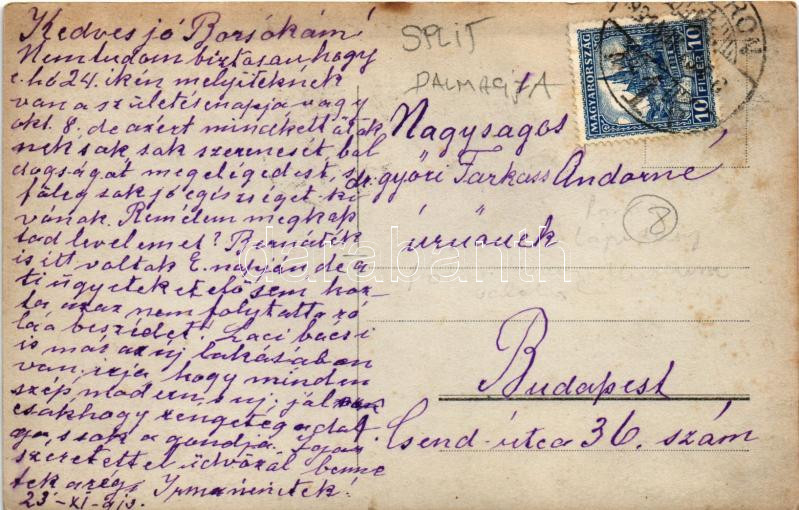 Kedves jó Borsókám!
Nem tudom biztosan hogy
e. hó 24. ikén melyiteknek
van a születésenapja vagy
okt. 8, de azért mindkettőtök
nek sok sok szerencsét bol
dogságot megelégedést, s
főleg sok jó egészséget ki
vánok. Remélem megkap
tad levelemet? Bernáték
is itt voltak E. napján de a
ti ügyeteket elő sem hoz
ta azaz nem folytatta ró
la a beszédet. Laci bácsi
is már az új lakásában
van. írja hogy minden
szép, modern, s új; jól van
csakhogy rengeteg adós
s sok a gondja. Igaz
szeretettel üdvözöl benne
teket a régi Irmanénétek!
23-XI-
SPLIT
DALMACIJA
MAGYARORSZÁG
10 FILLÉR 10
Nagyságos
dr. győri Farkass Andorné
úrnőnek
8
darabanth
Budapest
Csend-utca 36. szám